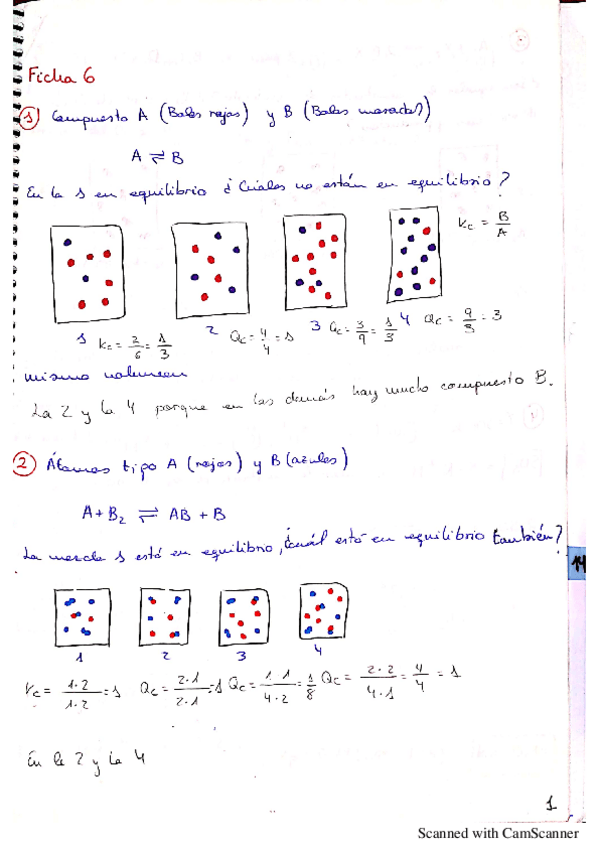 Ficha 6
1) Compuesto A (Bolas rojas) y B (Bolas moradas)
A ⇌ B
En la 1 en equilibrio ¿Cuáles no están en equilibrio?
Kc = B/A
1 Kc = 2/6 = 1/3
2 Qc = 4/4 = 1
3 Qc = 3/9 = 1/3
4 Qc = 9/3 = 3
mismo volumen
La 2 y la 4 porque en las demás hay mucho compuesto B.
2) Átomos tipo A (rojos) y B (azules)
A + B₂ ⇌ AB + B
La mezcla 1 está en equilibrio, ¿cuál está en equilibrio también?
14
1 2 3 4
Kc = 1·2/1·2 = 1 Qc = 2·1/2·1 = 1 Qc = 1·1/4·2 = 1/8 Qc = 2·2/4·1 = 4/4 = 1
En la 2 y la 4
1
Scanned with CamScanner